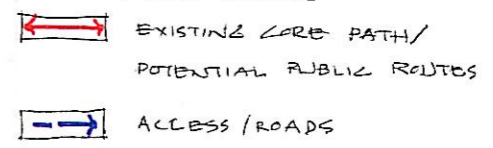 EXISTING CORE PATH/
POTENTIAL PUBLIC ROUTES
ACCESS/ROADS